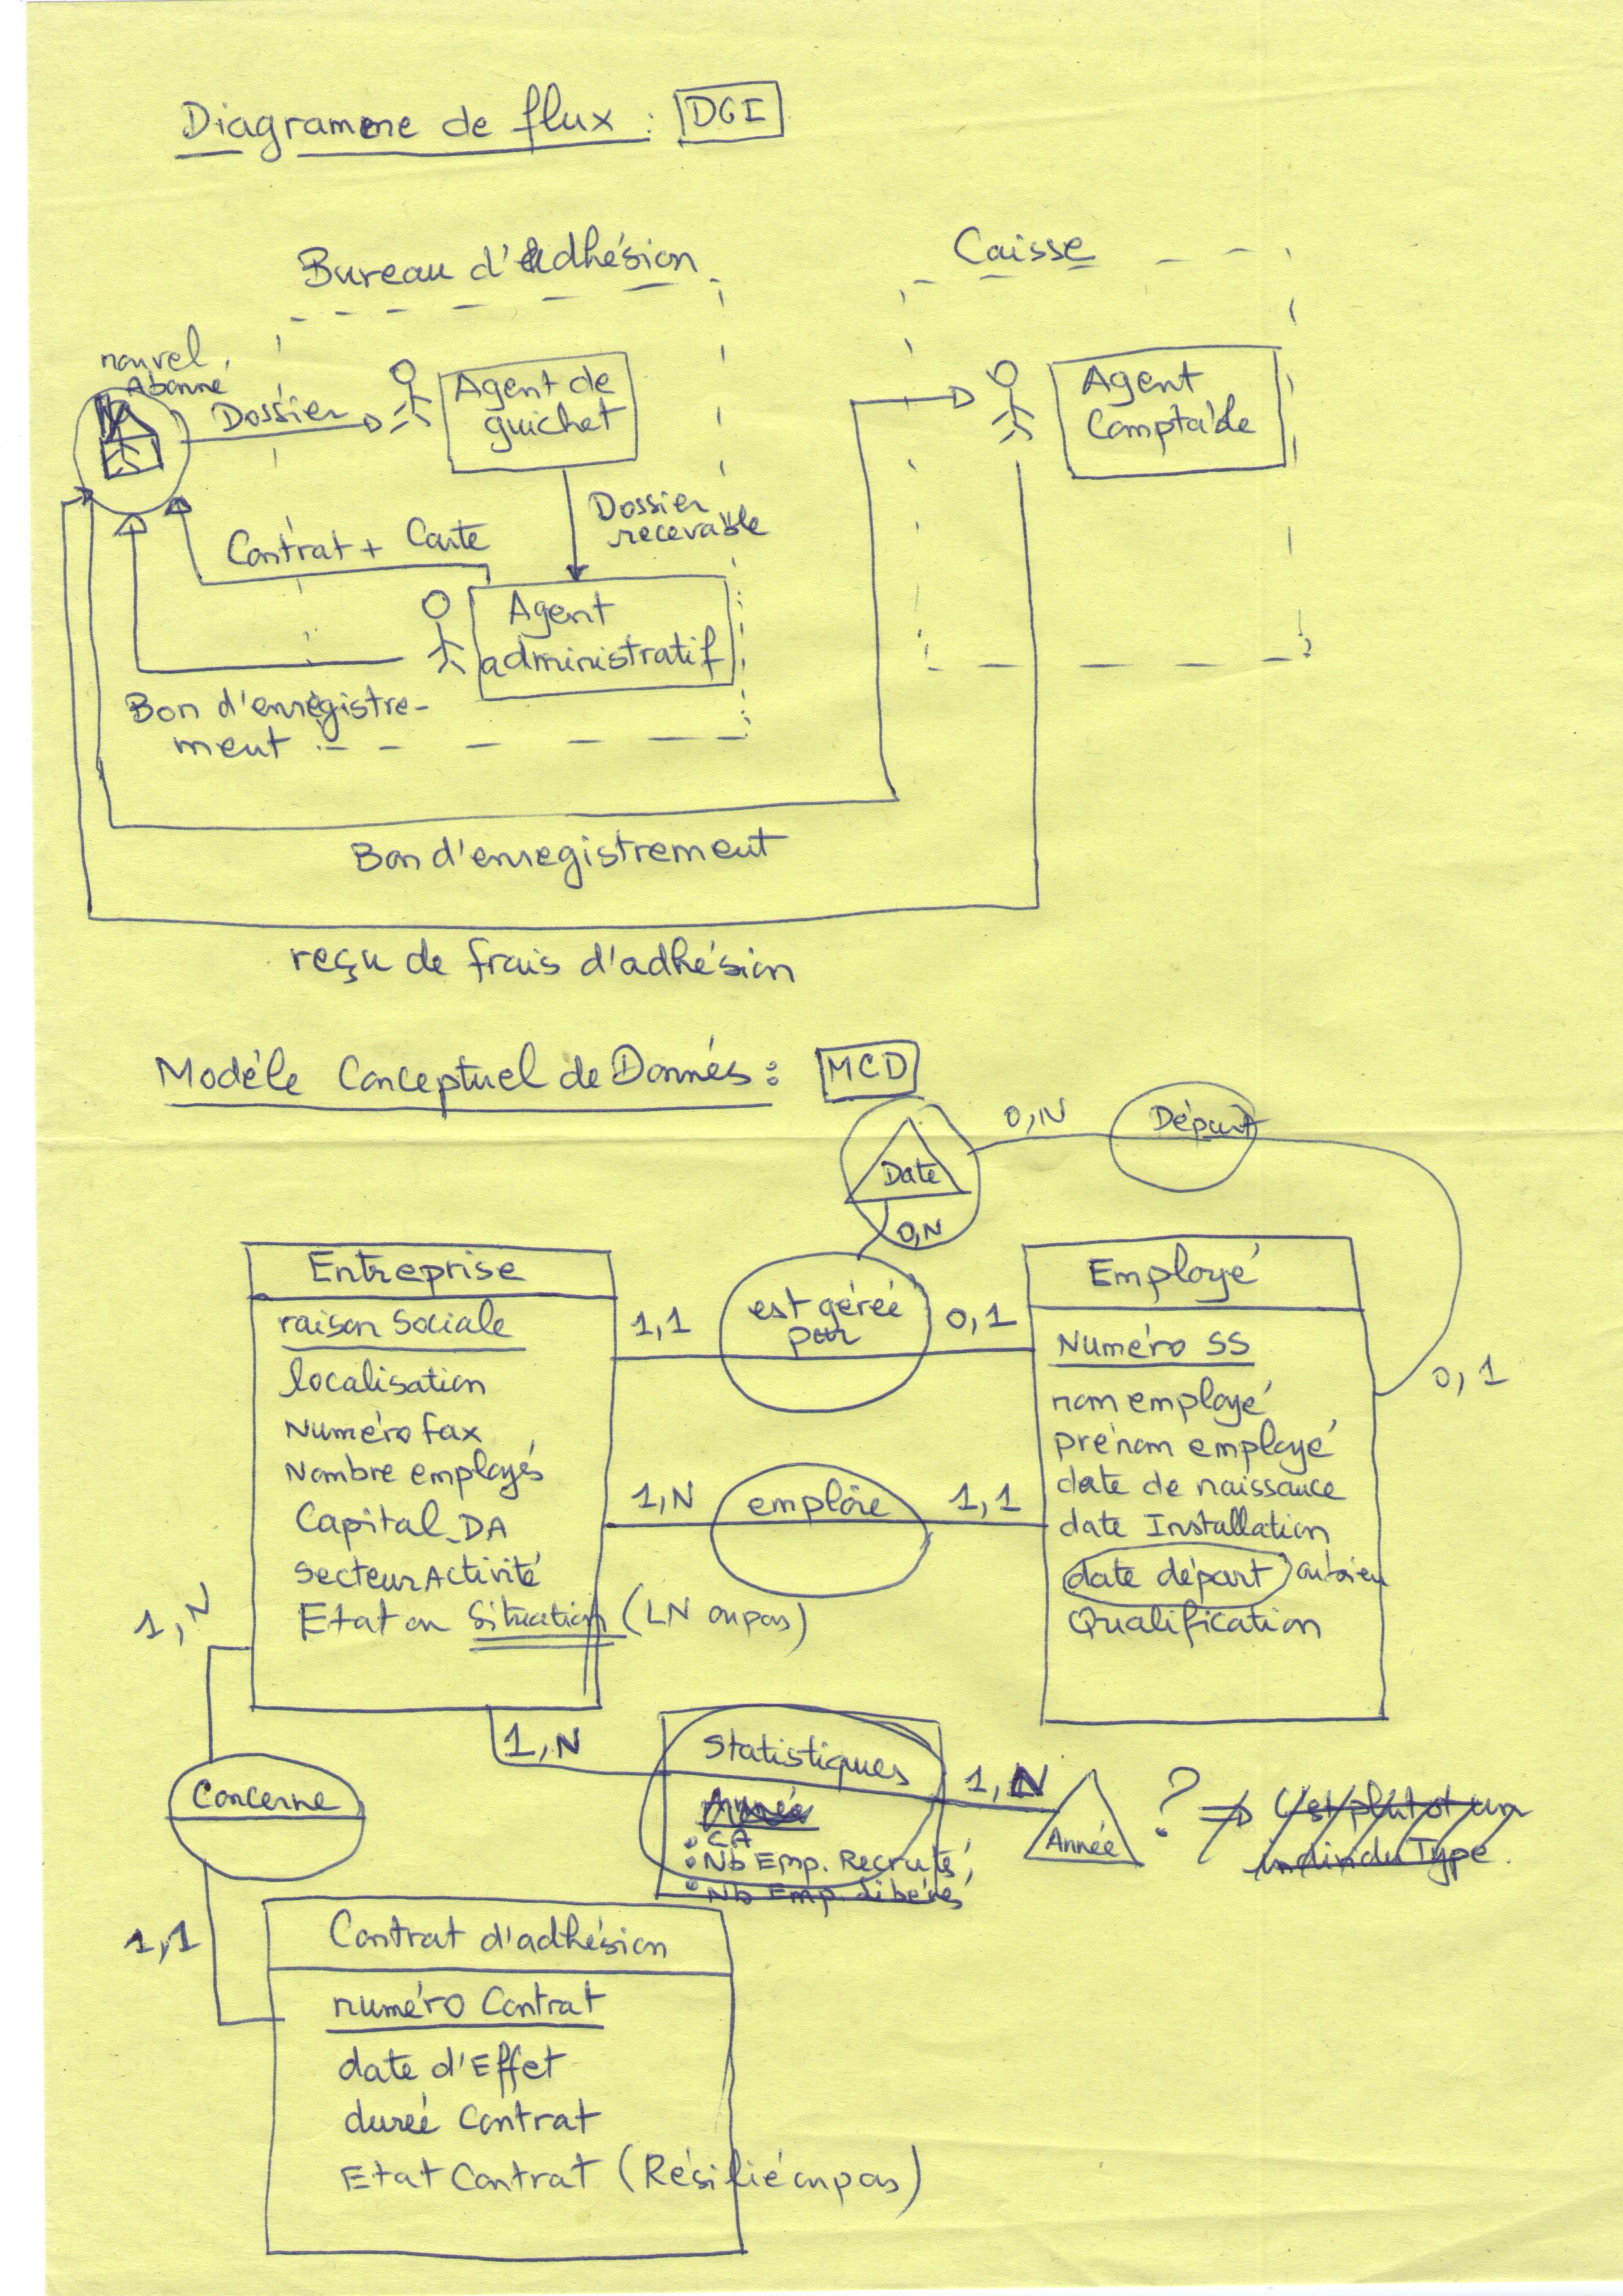 Diagramme de flux : DGI
Bureau d'adhésion
Caisse
nouvel
Abonné
Dossier
Agent de
guichet
Agent
Comptable
Dossier
recevable
Contrat + Carte
Agent
administratif
Bon d'enregistre-
ment
Bon d'enregistrement
reçu de frais d'adhésion
Modèle Conceptuel de Donnés : MCD
0,N
Départ
Date
0,N
Entreprise
raison Sociale
localisation
Numéro fax
Nombre employés
Capital_DA
Secteur Activité
Etat ou Situation (LN ou pas)
1,1
est gérée
par
0,1
1,N
emploie
1,1
Employé
Numéro SS
nom employé
prénom employé
date de naissance
date Installation
date départ
Qualification
0,1
1,N
1,N
Statistiques
Année
• CA
• Nb Emp. Recrutés
• Nb Emp. Libérés
1,N
Année
? ⇒ C'est plutot un
individu Type.
Concerne
1,1
Contrat d'adhésion
numéro Contrat
date d'Effet
durée Contrat
Etat Contrat (Résilié ou pas)